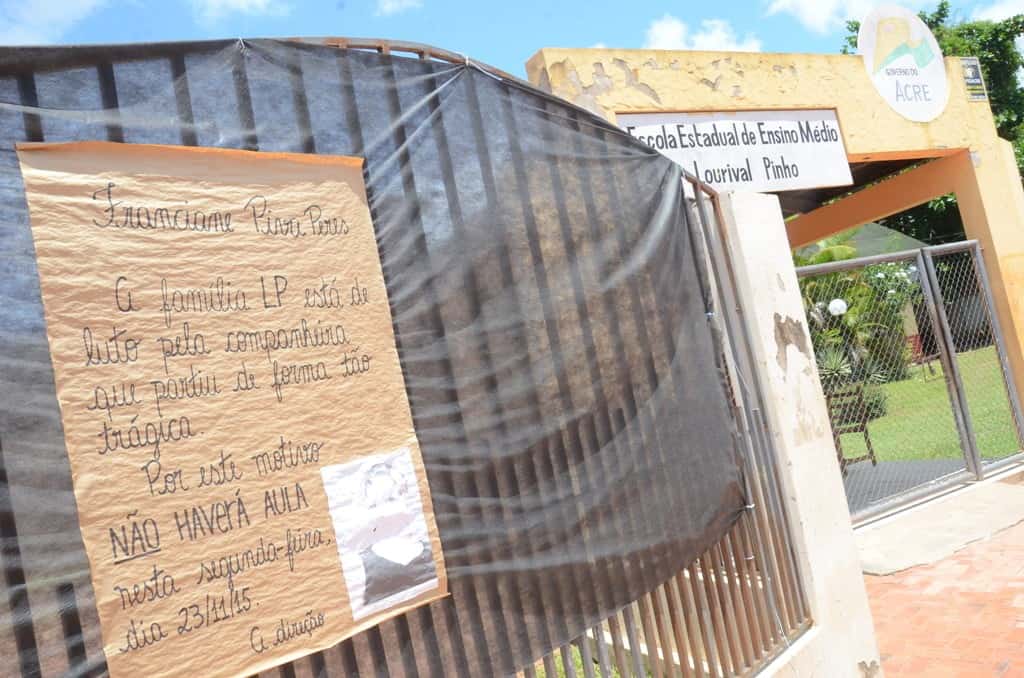 Franciane Piva Peres
A família LP está de
luto pela companheira
que partiu de forma tão
trágica.
Por este motivo
NÃO HAVERÁ AULA
nesta segunda-feira,
dia 23/11/15.
A direção
Escola Estadual de Ensino Médio
Lourival Pinho
GOVERNO DO
ACRE